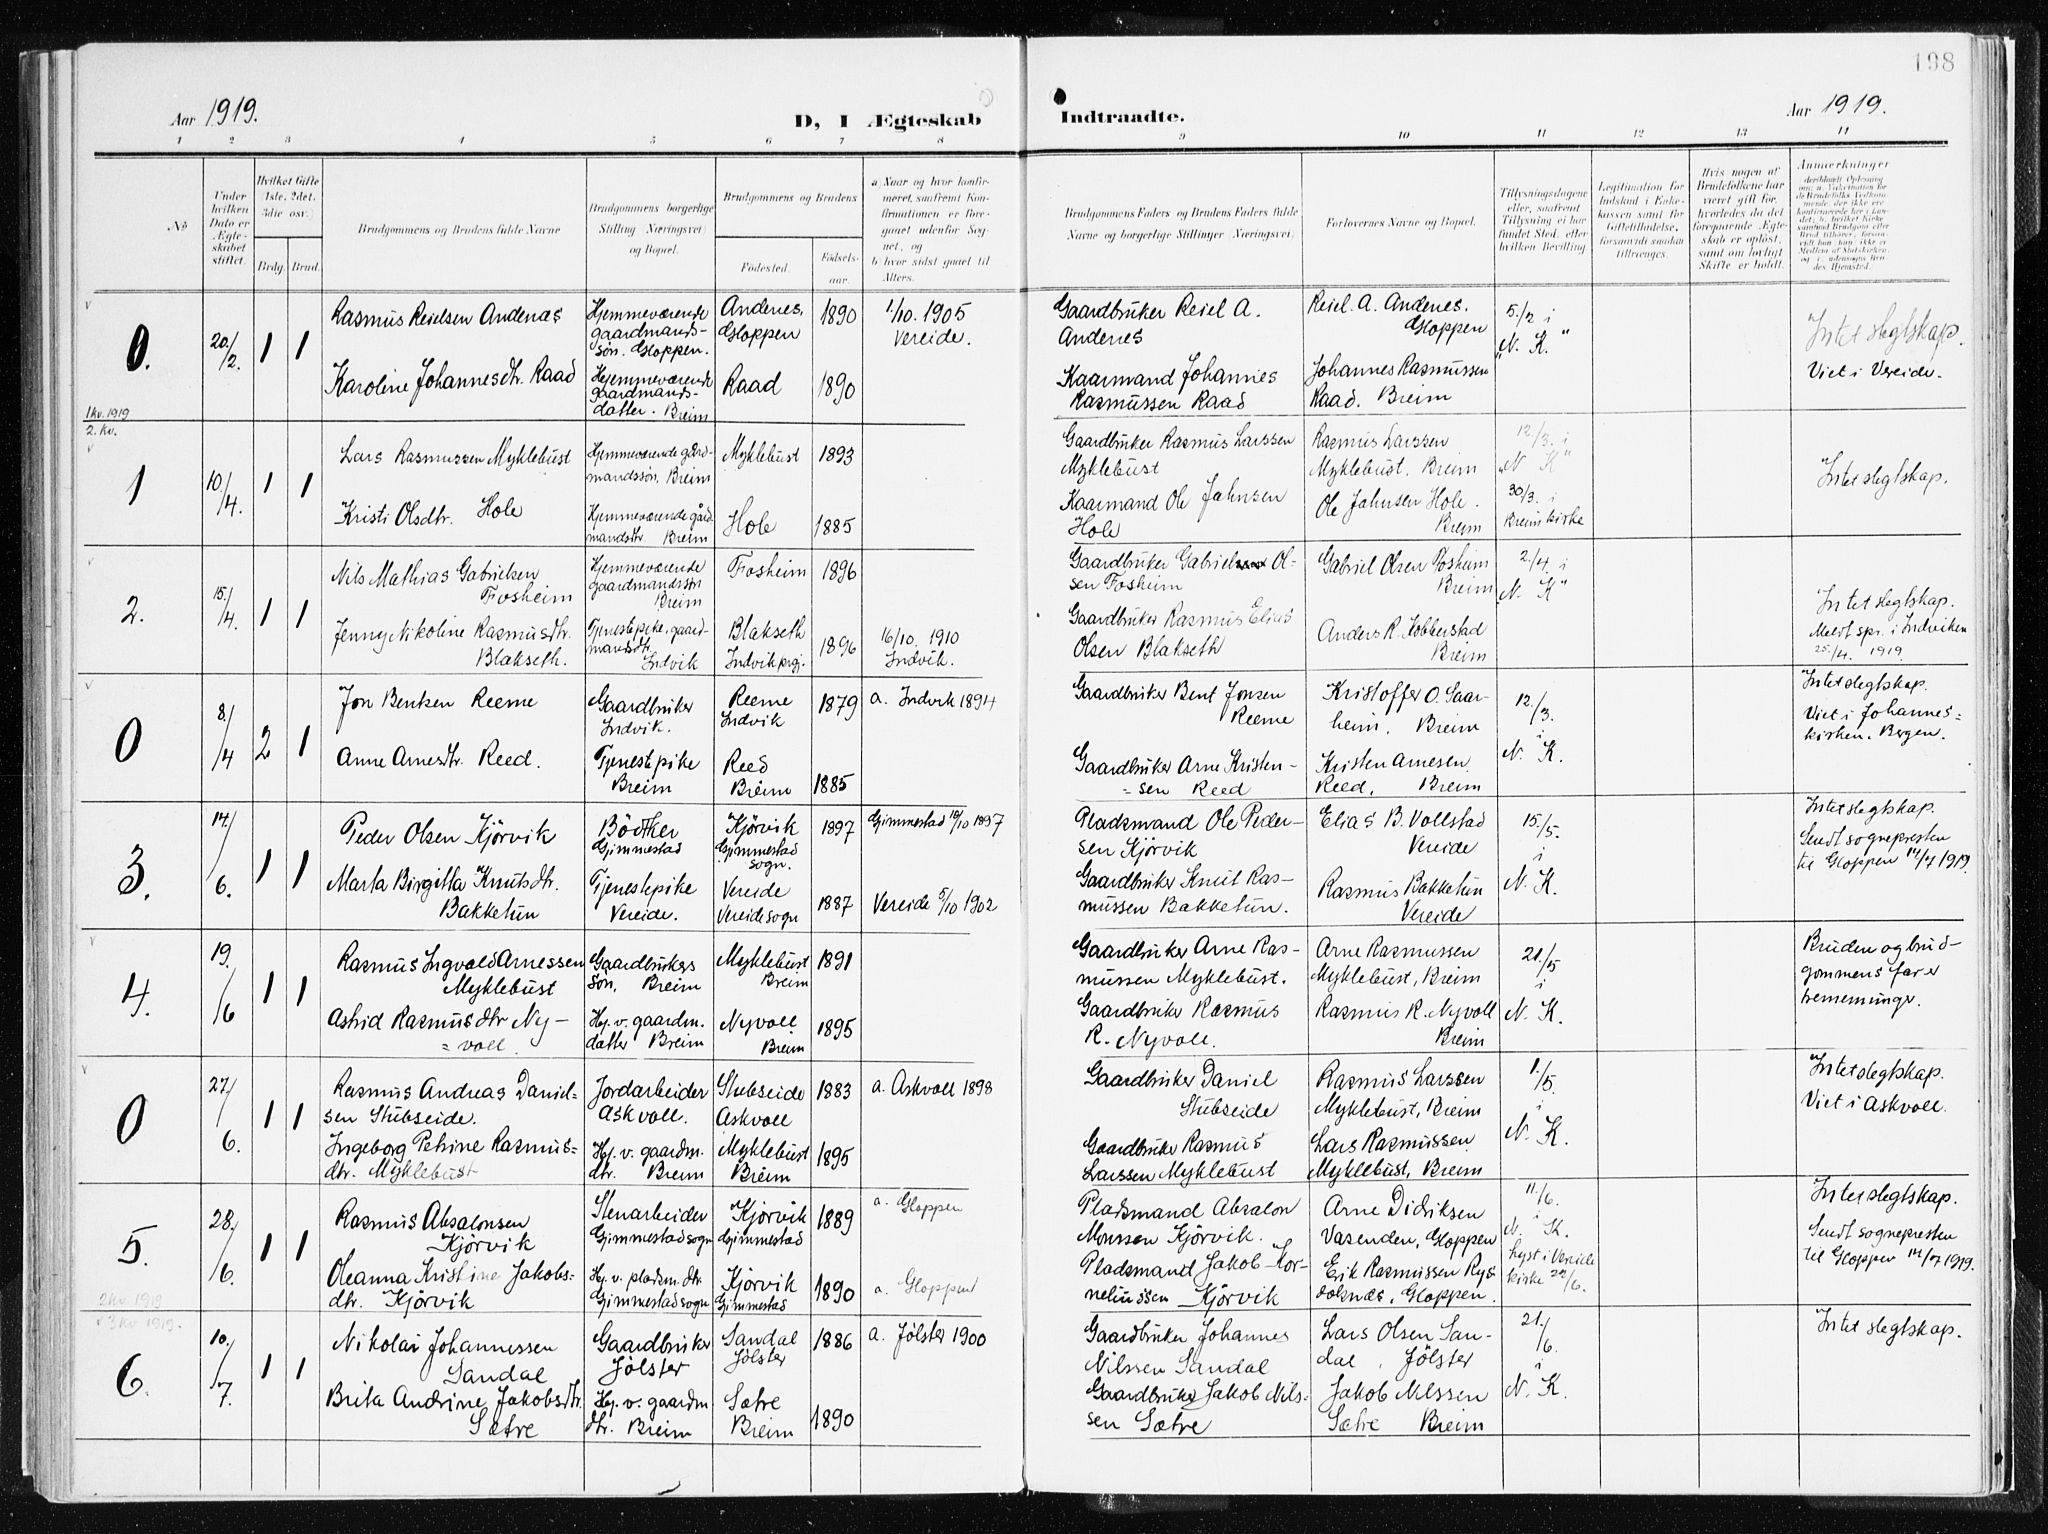 198
Aar 1919.
D, I Ægteskab Indtraadte.
Aar 1919.
1 2 3 4 5 6 7 8 9 10 11 12 13 14
No
Under hvilken Dato er Ægteskabet stiftet.
Hvilket Gifte 1ste, 2det, 3die osv.)
Brdg. Brud.
Brudgommens og Brudens fulde Navne
Brudgommens borgerlige Stilling (Næringsvei) og Bopæl.
Brudgommens og Brudens
Fødested.
Fødselsaar.
a) Naar og hvor konfirmeret, saafremt Konfirmationen er foregaaet udenfor Sognet, og
b) hvor sidst gaaet til Alters.
Brudgommens Faders og Brudens Faders fulde Navne og borgerlige Stillinger (Næringsvei)
Forlovernes Navne og Bopæl.
Tillysningsdagene eller, saafremt Tillysning ei har fundet Sted, efter hvilken Bevilling.
Legitimation for Indskud i Enkekassen samt for Giftetilladelse, forsaavidt saadan tiltrænges.
Hvis nogen af Brudefolkene har været gift før, hvorledes da det foregaaende Ægteskab er opløst, samt om lovligt Skifte er holdt.
Anmerkninger
0.
20/2.
1 1
Rasmus Reielsen Andenæs
Hjemmeværende gaardmandssøn. Gloppen.
Andenes, Gloppen
1890
1/10. 1905 Vereide.
Gaardbruker Reiel A. Andenes
Reiel. A. Andenes. Gloppen
5/2 i "N. K."
Intet slegtskap.
Viet i Vereide.
Karoline Johannesdtr. Raad
Hjemmeværende gaardmandsdatter. Breim
Raad
1890
Kaarmand Johannes Rasmussen Raad
Johannes Rasmussen Raad. Breim
1 kv. 1919
2. kv.
1
10/4.
1 1
Lars Rasmussen Myklebust
Hjemmeværende gårdmandssøn, Breim
Myklebust
1893
Gaardbruker Rasmus Larssen Myklebust
Rasmus Larssen Myklebust. Breim
12/3. i "N. K"
Intet slegtskap.
Kristi Olsdtr. Hole
Hjemmeværende gårdmandsdtr. Breim
Hole
1885
Kaarmand Ole Jahnsen Hole
Ole Jahnsen Hole. Breim
30/3. i Breim kirke
2.
15/4.
1 1
Nils Mathias Gabrielsen Fosheim
Hjemmeværende gaardmandssøn Breim
Fosheim
1896
Gaardbruker Gabriel Olsen Fosheim
Gabriel Olsen Fosheim Breim
2/4. i "N. K"
Intet slegtskap.
Meldt spr. i Indviken 25/4. 1919.
Jenny Nikoline Rasmusdtr. Blakseth.
Tjenestepike, gaardmandsdtr. Indvik
Blakseth Indvik prgj.
1896
16/10. 1910 Indvik.
Gaardbruker Rasmus Elias Olsen Blakseth
Anders R. Kobberstad Breim
0
8/4
2 1
Jon Bentsen Reeme
Gaardbruker Indvik.
Reeme Indvik
1879
a. Indvik 1894
Gaardbruker Bent Jonsen Reeme
Kristoffer O. Saarheim, Breim
12/3. i N. K.
Intet slegtskap.
Viet i Johanneskirken. Bergen.
Anne Arnesdtr. Reed.
Tjenestpike Breim
Reed Breim
1885
Gaardbruker Arne Kristensen Reed
Kristen Arnesen Reed, Breim
3.
14/6.
1 1
Peder Olsen Kjörvik
Bödtker Gimmestad
Kjörvik Gimmestad sogn.
1897
Gimmestad 10/10 1897
Pladsmand Ole Pedersen Kjörvik
Elias B. Vollstad Vereide
15/5. i N. K.
Intet slegtskap.
Sendt sognepresten til Gloppen 14/7 1919.
Marta Birgitta Knutsdtr. Bakketun
Tjenestepike Vereide.
Vereide Vereide sogn
1887
Vereide 5/10 1902
Gaardbruker Knut Rasmussen Bakketun.
Rasmus Bakketun Vereide
4.
19/6
1 1
Rasmus Ingvald Arnessen Myklebust
Gaardbrukers søn, Breim
Myklebust Breim
1891
Gaardbruker Arne Rasmussen Myklebust.
Arne Rasmussen Myklebust, Breim
21/5 i N. K.
Bruden og brudgommens far er tremenninger.
Astrid Rasmusdtr Nyvoll.
Hj. v. gaardm. datter Breim
Nyvoll Breim
1895
Gaardbruker Rasmus R. Nyvoll.
Rasmus R. Nyvoll Breim
0
27/6.
1 1
Rasmus Andreas Danielsen Stubseide.
Jordarbeider Askvoll.
Stubseide Askvoll
1883
a. Askvoll 1898
Gaardbruker Daniel Stubseide
Rasmus Larssen Myklebust, Breim
1/5. i N. K.
Intet slegtskap.
Viet i Askvoll.
Ingeborg Petrine Rasmusdtr. Myklebust
Hj. v. gaardm. dtr. Breim
Myklebust Breim
1895
Gaardbruker Rasmus Larssen Myklebust
Lars Rasmussen Myklebust, Breim
5.
28/6.
1 1
Rasmus Absalonsen Kjörvik
Stenarbeider Gimmestad sogn
Kjörvik Gimmestad
1889
a. Gloppen
Pladsmand Absalon Monssen Kjörvik.
Arne Didriksen Vasenden, Gloppen
11/6. i N. K.
Intet slegtskap.
Sendt sognepresten til Gloppen 14/7 1919.
Oleanna Kristine Jakobsdtr. Kjörvik
Hj. v. pladsm. dtr Gimmestad sogn
Kjörvik Gimmestad
1890
a. Gloppen
Pladsmand Jakob Korneliussen Kjörvik
Erik Rasmussen Gloppen.
Lyst i Vereide kirke 22/6.
2 kv. 1919
3 kv 1919.
6.
10/7.
1 1
Nikolai Johannessen Sandal
Gaardbruker Jölster
Sandal Jölster
1886
a. Jölster 1900
Gaardbruker Johannes Nilssen Sandal
Lars Olsen Sandal, Jölster
21/6. i N. K.
Intet slegtskap.
Brita Andrine Jakobsdtr. Sætre
Hj. v. gaardm. dtr. Breim
Sætre Breim
1890
Gaardbruker Jakob Nilssen Sætre
Jakob Nilssen Sætre Breim